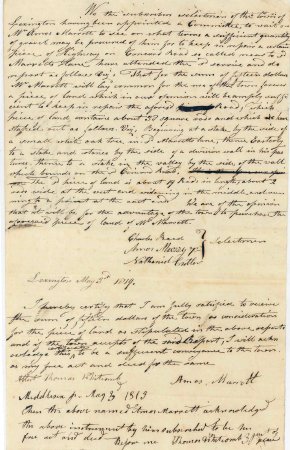 We the subscribers selectmen of the town of
Lexington having been appointed a Committee to wait on
Mr Amos Marrett to see on what terms a sufficient quantity
of gravel may be procured of him for to keep in repair a certain
piece of Highway or Common Road so called near to Sd
Marretts place have attended the Sd service and do
report as follows Viz; That for the sum of fifteen dollars
Mr Marrett will lay common for the use of the town forever
a piece of land which in our opinion will be amply suffi-
cient to keep in repair the aforesd Road; which
piece of land contains about square rods and which we have
staked out as follows Viz; Beginning at a stake by the side of
a small white oak tree in Sd Marretts land, thence Easterly
to a stake and stones by the side of a division wall in his pas-
ture thence to a stake in the valley by the side of the wall
which bounds on the Sd Common Road,
the Sd piece of land is about 19 Rods in length about 2
rods wide at the west end widening in the middle and run-
ning to a point at the east end We are of the opinion
that it will be for the advantage of the town to purchase the
aforesaid piece of land of Mr Marrett
Charles Reed
Amos Muzzy Jr
Nathaniel Cutler
Selectmen
Lexington May 3d 1819.
I hereby certify that I am fully satisfied to receive
the sum of fifteen dollars of the town as consideration
for the piece of land as stipulated in the above report
and if the town accepts of the said Report, I will ack-
nowledge this to be a sufficient conveyance to the town
as my free act and deed for the same
Attest Thomas Whitcomb Amos Marrett
Middlesex ss. May 3 1813
Then the above named Amos Marrett acknowledged
the above instrument by him subscribed to be his
free act and deed Before me Thomas Whitcomb Just of peace